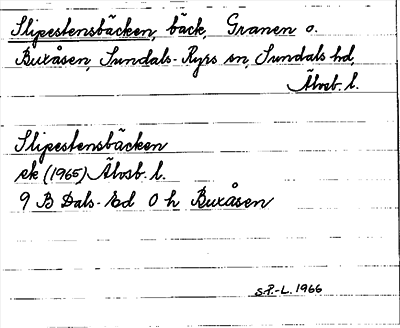 Slipestensbäcken, bäck, Granen o.
Buxåsen, Sundals-Ryrs sn, Sundals hd,
Älvsb. l.
Slipestensbäcken
ek (1965) Älvsb. l.
9 B Dals-Ed 0 h Buxåsen
S.P.-L. 1966